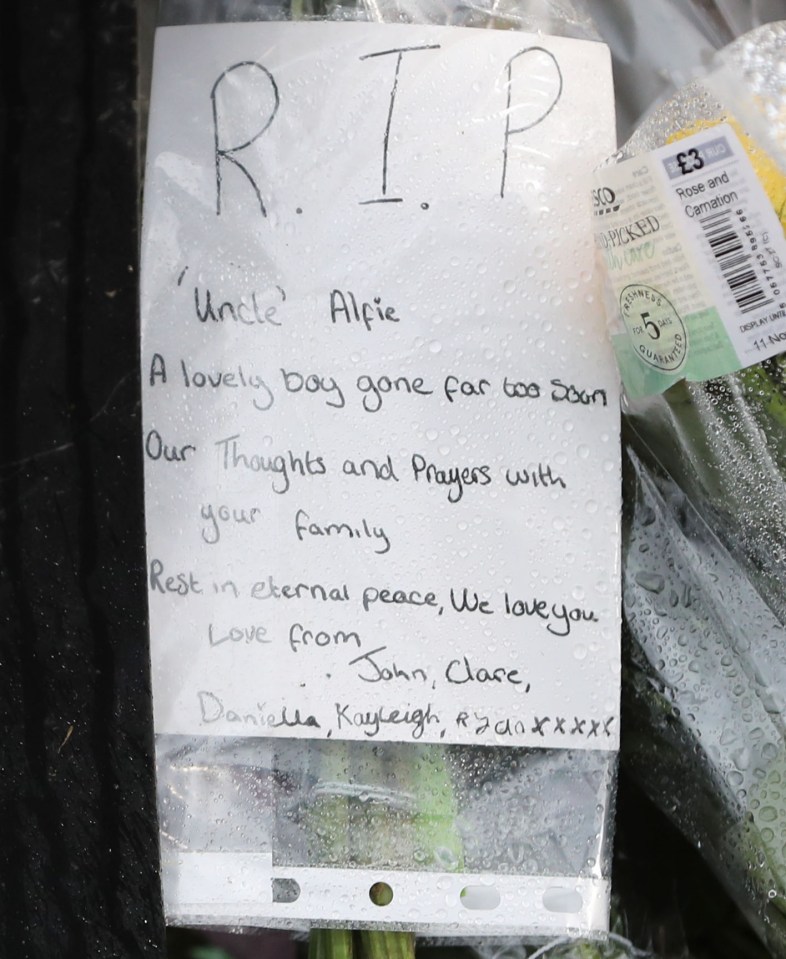 R. I. P
'Uncle' Alfie
A lovely boy gone far too soon
Our Thoughts and Prayers with
your family
Rest in eternal peace, We love you
Love from
John, Clare,
Daniella, Kayleigh, Ryan xxxxx
£3
Rose and
Carnation
SCO
D-PICKED
th care
FRESHNESS
FOR 5 DAYS
GUARANTEED
DISPLAY UNTIL
11 No